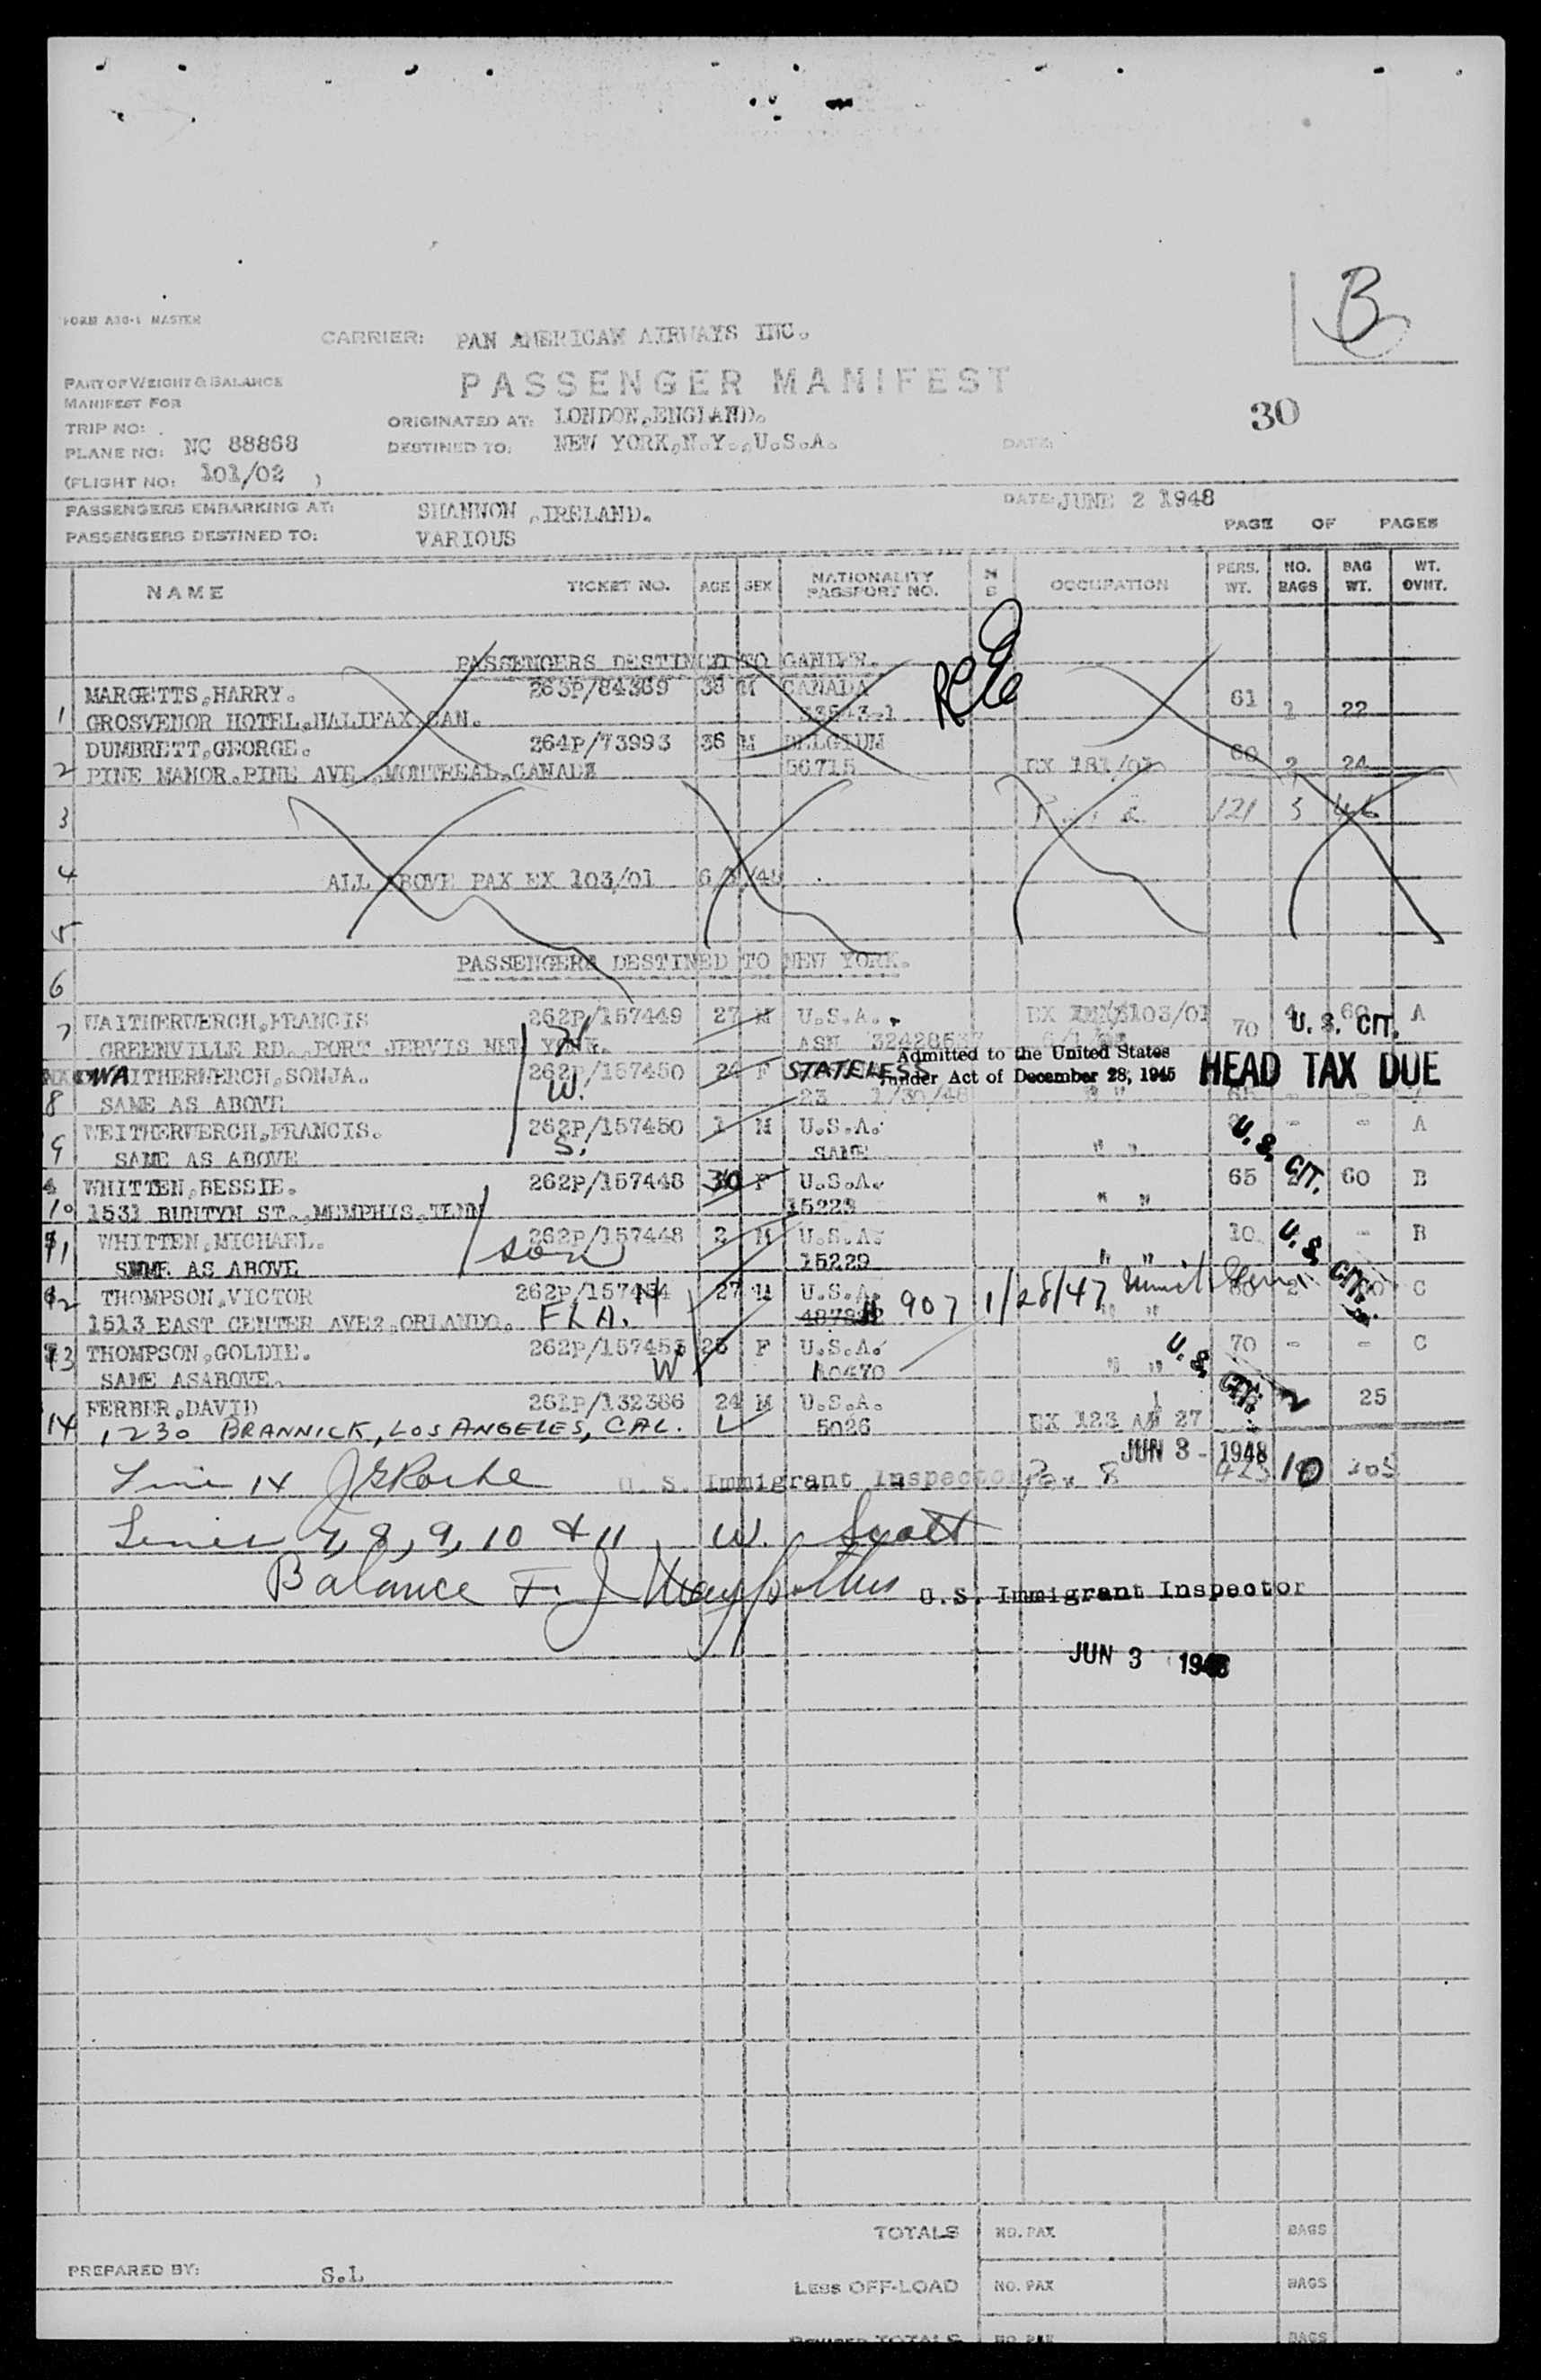 FORM A30-1 MASTER
CARRIER: PAN AMERICAN AIRWAYS INC.
B
PART OF WEIGHT & BALANCE
PASSENGER MANIFEST
MANIFEST FOR
30
TRIP NO:
ORIGINATED AT: LONDON,ENGLAND.
PLANE NO: NC 88868
DESTINED TO: NEW YORK,N.Y.,U.S.A.
DATE:
(FLIGHT NO: 101/02 )
PASSENGERS EMBARKING AT: SHANNON ,IRELAND.
DATE: JUNE 2 1948
PASSENGERS DESTINED TO: VARIOUS
PAGE OF PAGES
NAME TICKET NO. AGE SEX NATIONALITY PASSPORT NO. OCCUPATION PERS. WT. NO. BAGS BAG WT. WT. OVHT.
PASSENGERS DESTINED TO GANDER.
MARGETTS,HARRY. 263P/84369 38 M CANADA 61
1 GROSVENOR HOTEL,HALIFAX CAN. 22
DUMBRETT,GEORGE. 264P/73993 36 M BELGIUM 60
2 PINE MANOR,PINE AVE.,MONTREAL,CANADA 56715 2 24
3 121 3 46
4 ALL ABOVE PAX EX 103/01
5
PASSENGERS DESTINED TO NEW YORK.
6
WAITHERWERCH,FRANCIS 262P/157449 27 M U.S.A. 103/01 70 60 A
7 GREENVILLE RD.,PORT JERVIS YORK. H ASN U. S. CIT.
WAITHERWERCH,SONJA. 262P/157450 F STATELESS Admitted to the United States under Act of December 28, 1945 HEAD TAX DUE
8 SAME AS ABOVE W. 23 1/30/48 " "
WEITHERWERCH,FRANCIS. 262P/157450 1 M U.S.A. - - A
9 SAME AS ABOVE S. SAME " " U. S. CIT.
WHITTEN,BESSIE. 262P/157448 30 F U.S.A. 65 60 B
10 1531 BUNTYN ST.,MEMPHIS,TENN 15229 " "
WHITTEN,MICHAEL. 262P/157448 2 M U.S.A. 10 - B
11 SAME AS ABOVE son 15229 " " U. S. CIT.
THOMPSON,VICTOR 262P/157454 H 27 M U.S.A. 907 1/28/47 C
12 1513 EAST CENTER AVE?,ORLANDO. FLA. " "
THOMPSON,GOLDIE. 262P/157453 25 F U.S.A. 70 - - C
13 SAME ASABOVE. W 10470 " " U. S. CIT.
FERBER,DAVID 261P/132386 24 M U.S.A. 25
14 1230 BRANNICK, LOS ANGELES, CAL. 5026 EX 123 27
JUN 3 - 1948
Line 14 J G Roche U. S. Immigrant Inspector Pax 8 10 305
Lines 7, 8, 9, 10 & 11 W. Scott
Balance F. J. U.S. Immigrant Inspector
JUN 3 1948
TOTALS NO. PAX BAGS
PREPARED BY: S.L
LESS OFF-LOAD NO. PAX BAGS
REVISED TOTALS NO. PAX BAGS